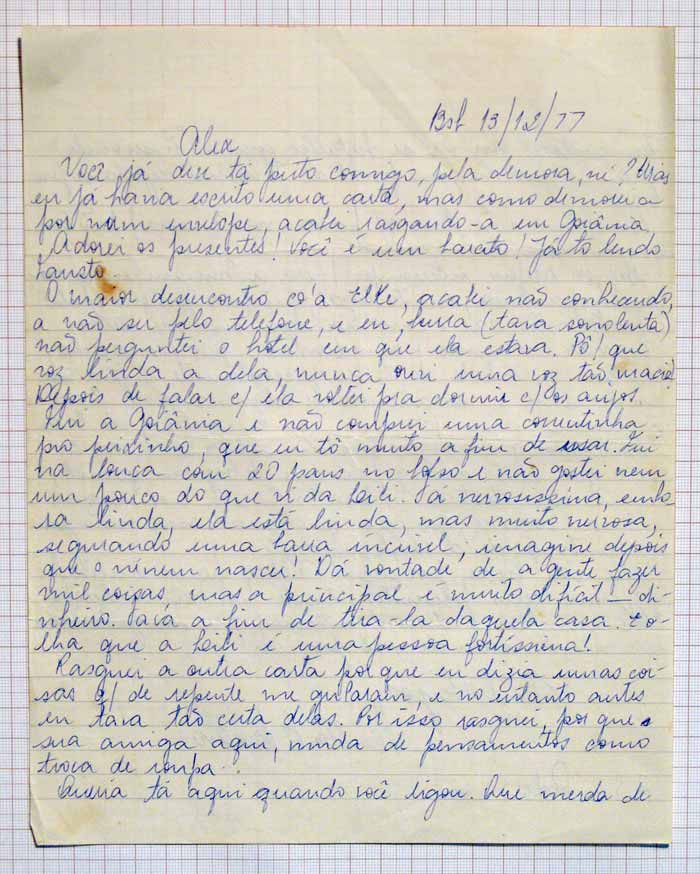 Bsb 13/12/77
Alex
Você já deve tá puto comigo, pela demora, né? Mas
eu já havia escrito uma carta, mas como demorei a
por num envelope, acabei rasgando-a em Goiânia.
Adorei os presentes! Você é um barato! Já tô lendo
Fausto.
O maior desencontro co'a Elke, acabei não conhecendo,
a não ser pelo telefone, e eu, burra (tava sonolenta)
não perguntei o hotel em que ela estava. Pô! que
voz linda a dela, nunca ouvi uma voz tão macia!
Depois de falar c/ ela voltei pra dormir c/ os anjos.
Fui a Goiânia e não comprei uma correntinha
pro peixinho, que eu tô muito a fim de usar. Fui
na louca com 20 paus no bolso e não gostei nem
um pouco do que vi da Leibi. Tá nervosíssima, embo-
ra linda, ela está linda, mas muito nervosa,
segurando uma barra incrível, imagine depois
que o neném nascer! Dá vontade de a gente fazer
mil coisas, mas a principal é muito difícil — di-
nheiro. Tava a fim de tira-la daquela casa. E o-
lha que a Leibi é uma pessoa fortíssima!
Rasguei a outra carta por que eu dizia umas coi-
sas q/ de repente me grilaram, e no entanto antes
eu tava tão certa delas. Por isso rasguei, por que a
sua amiga aqui, muda de pensamentos como
troca de roupa...
Queria tá aqui quando você ligou. Que merda de